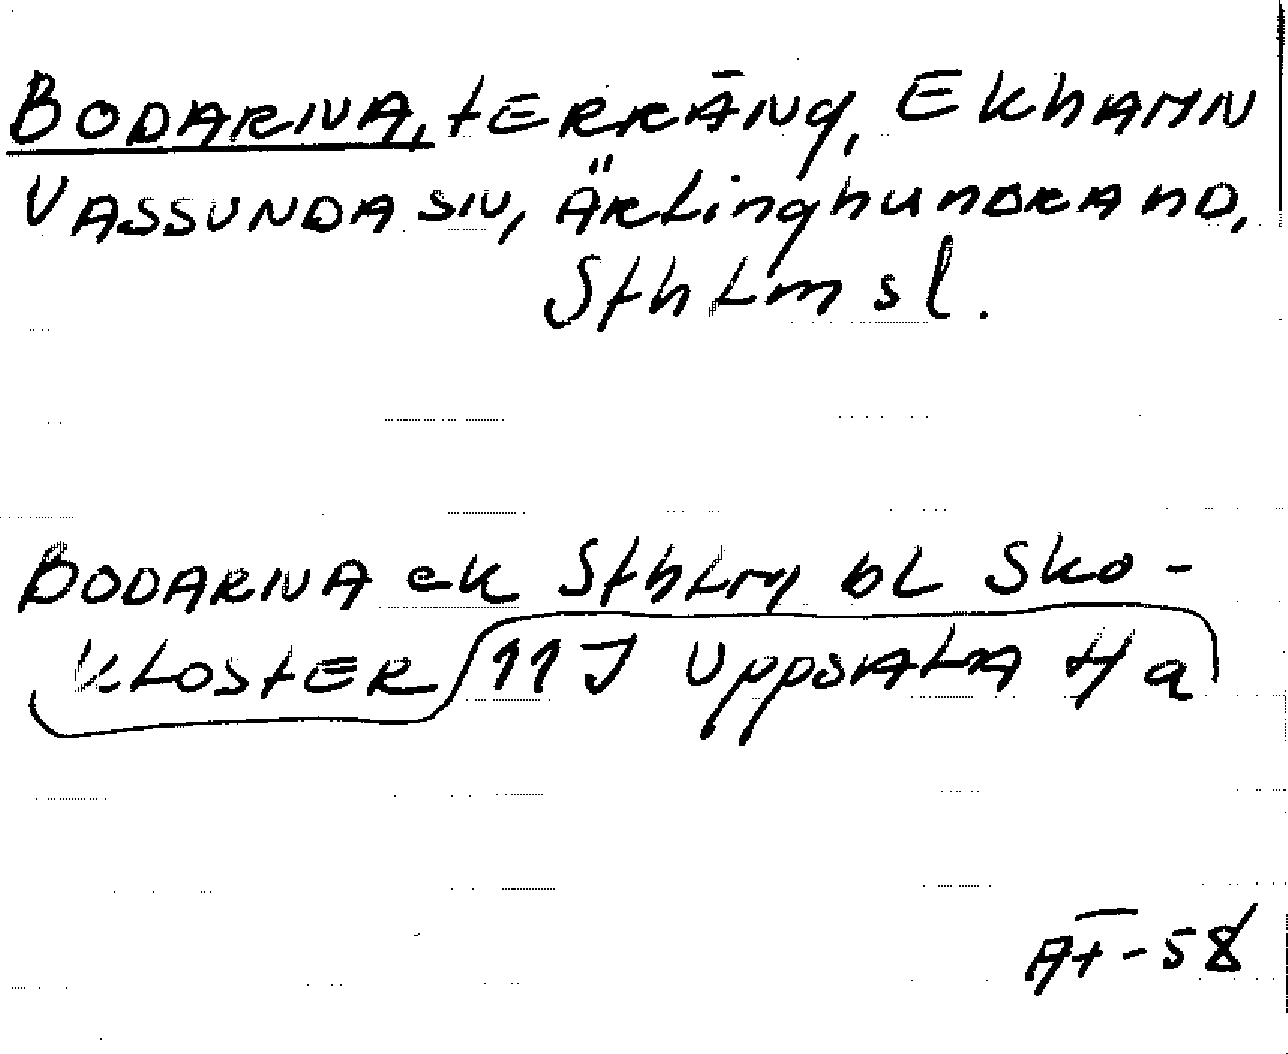 BODARNA, tERRÄNg, EKhAMN
VASSUNDA SN, ÄRLinghunDRAnD,
SthLm sl.
BODARNA ek SthLm bL Sko-
KLOSTER 11 I UppsALA Ha
AT-58